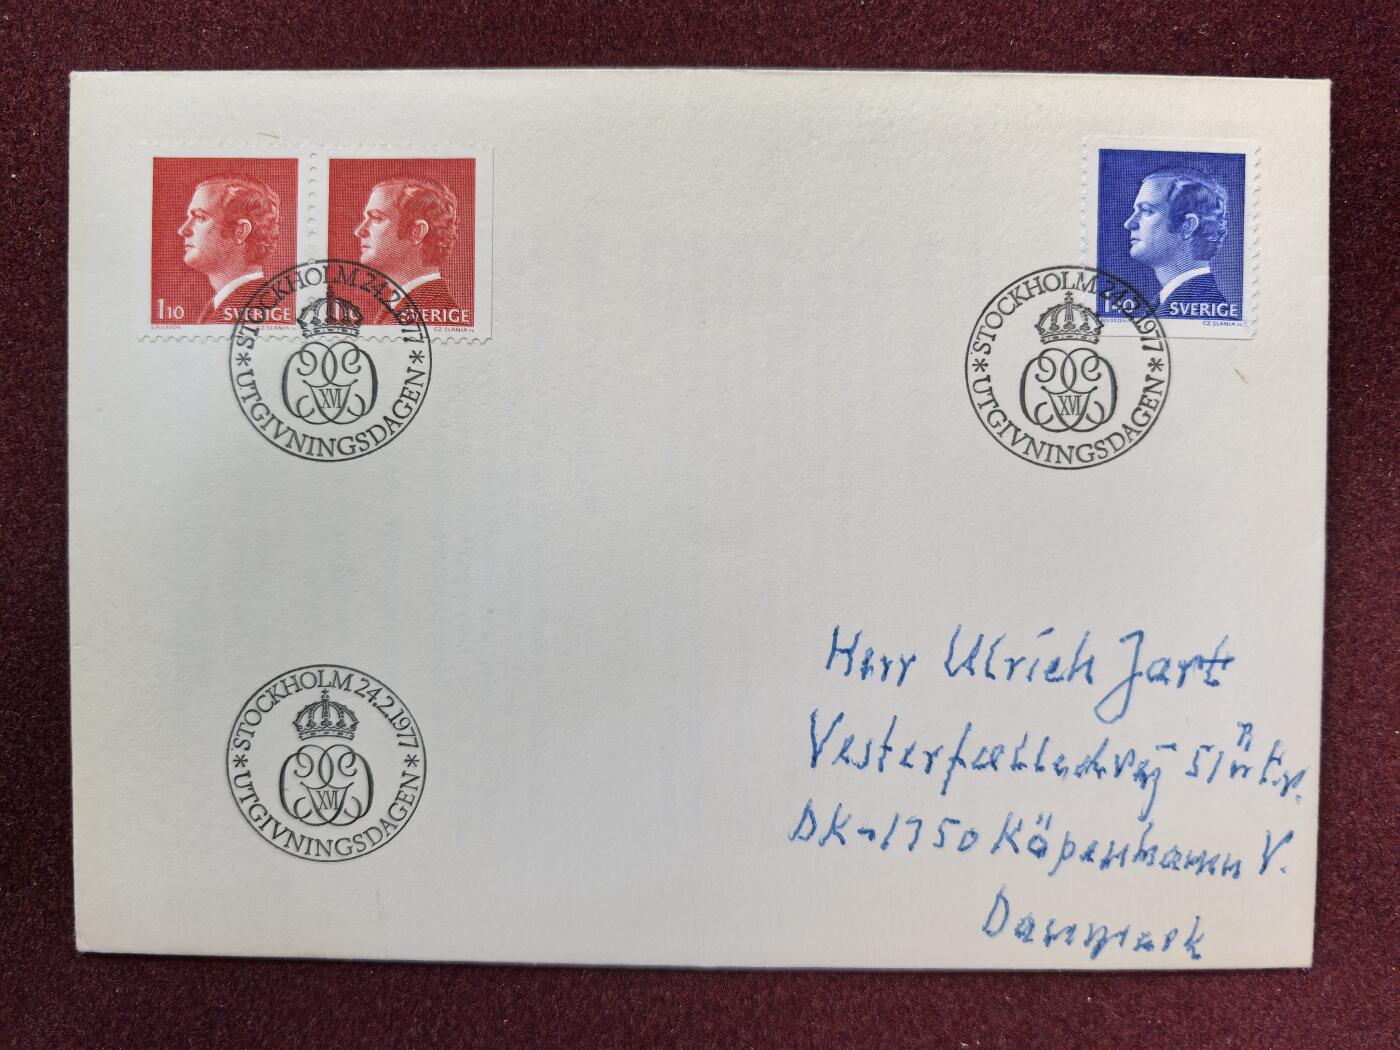 1 10 SVERIGE
SVERIGE
L. NILSSON CZ. SLANIA
CZ. SLANIA
STOCKHOLM 24.2.1977
XVI
* UTGIVNINGSDAGEN *
SVERIGE
CZ. SLANIA
STOCKHOLM 24.2.1977
XVI
* UTGIVNINGSDAGEN *
STOCKHOLM 24.2.1977
XVI
* UTGIVNINGSDAGEN *
Herr Ulrich Jart
51
DK-1750 Köpenhamn V.
Danmark